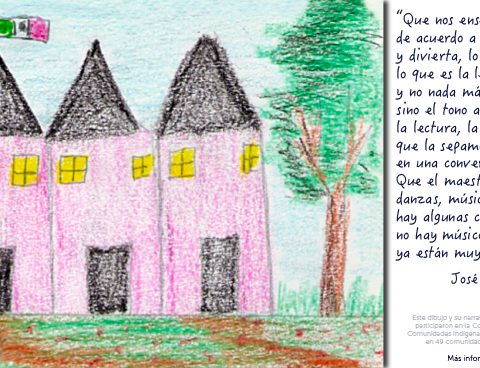 “Que nos ens
de acuerdo a
y divierta, lo
lo que es la l
y no nada má
sino el tono a
la lectura, la
que la sepam
en una conve
Que el maest
danzas, músic
hay algunas c
no hay músic
ya están muy
José
Este dibujo y su narra
participaron en la Co
Comunidades Indígena
en 49 comunidad
Más infor